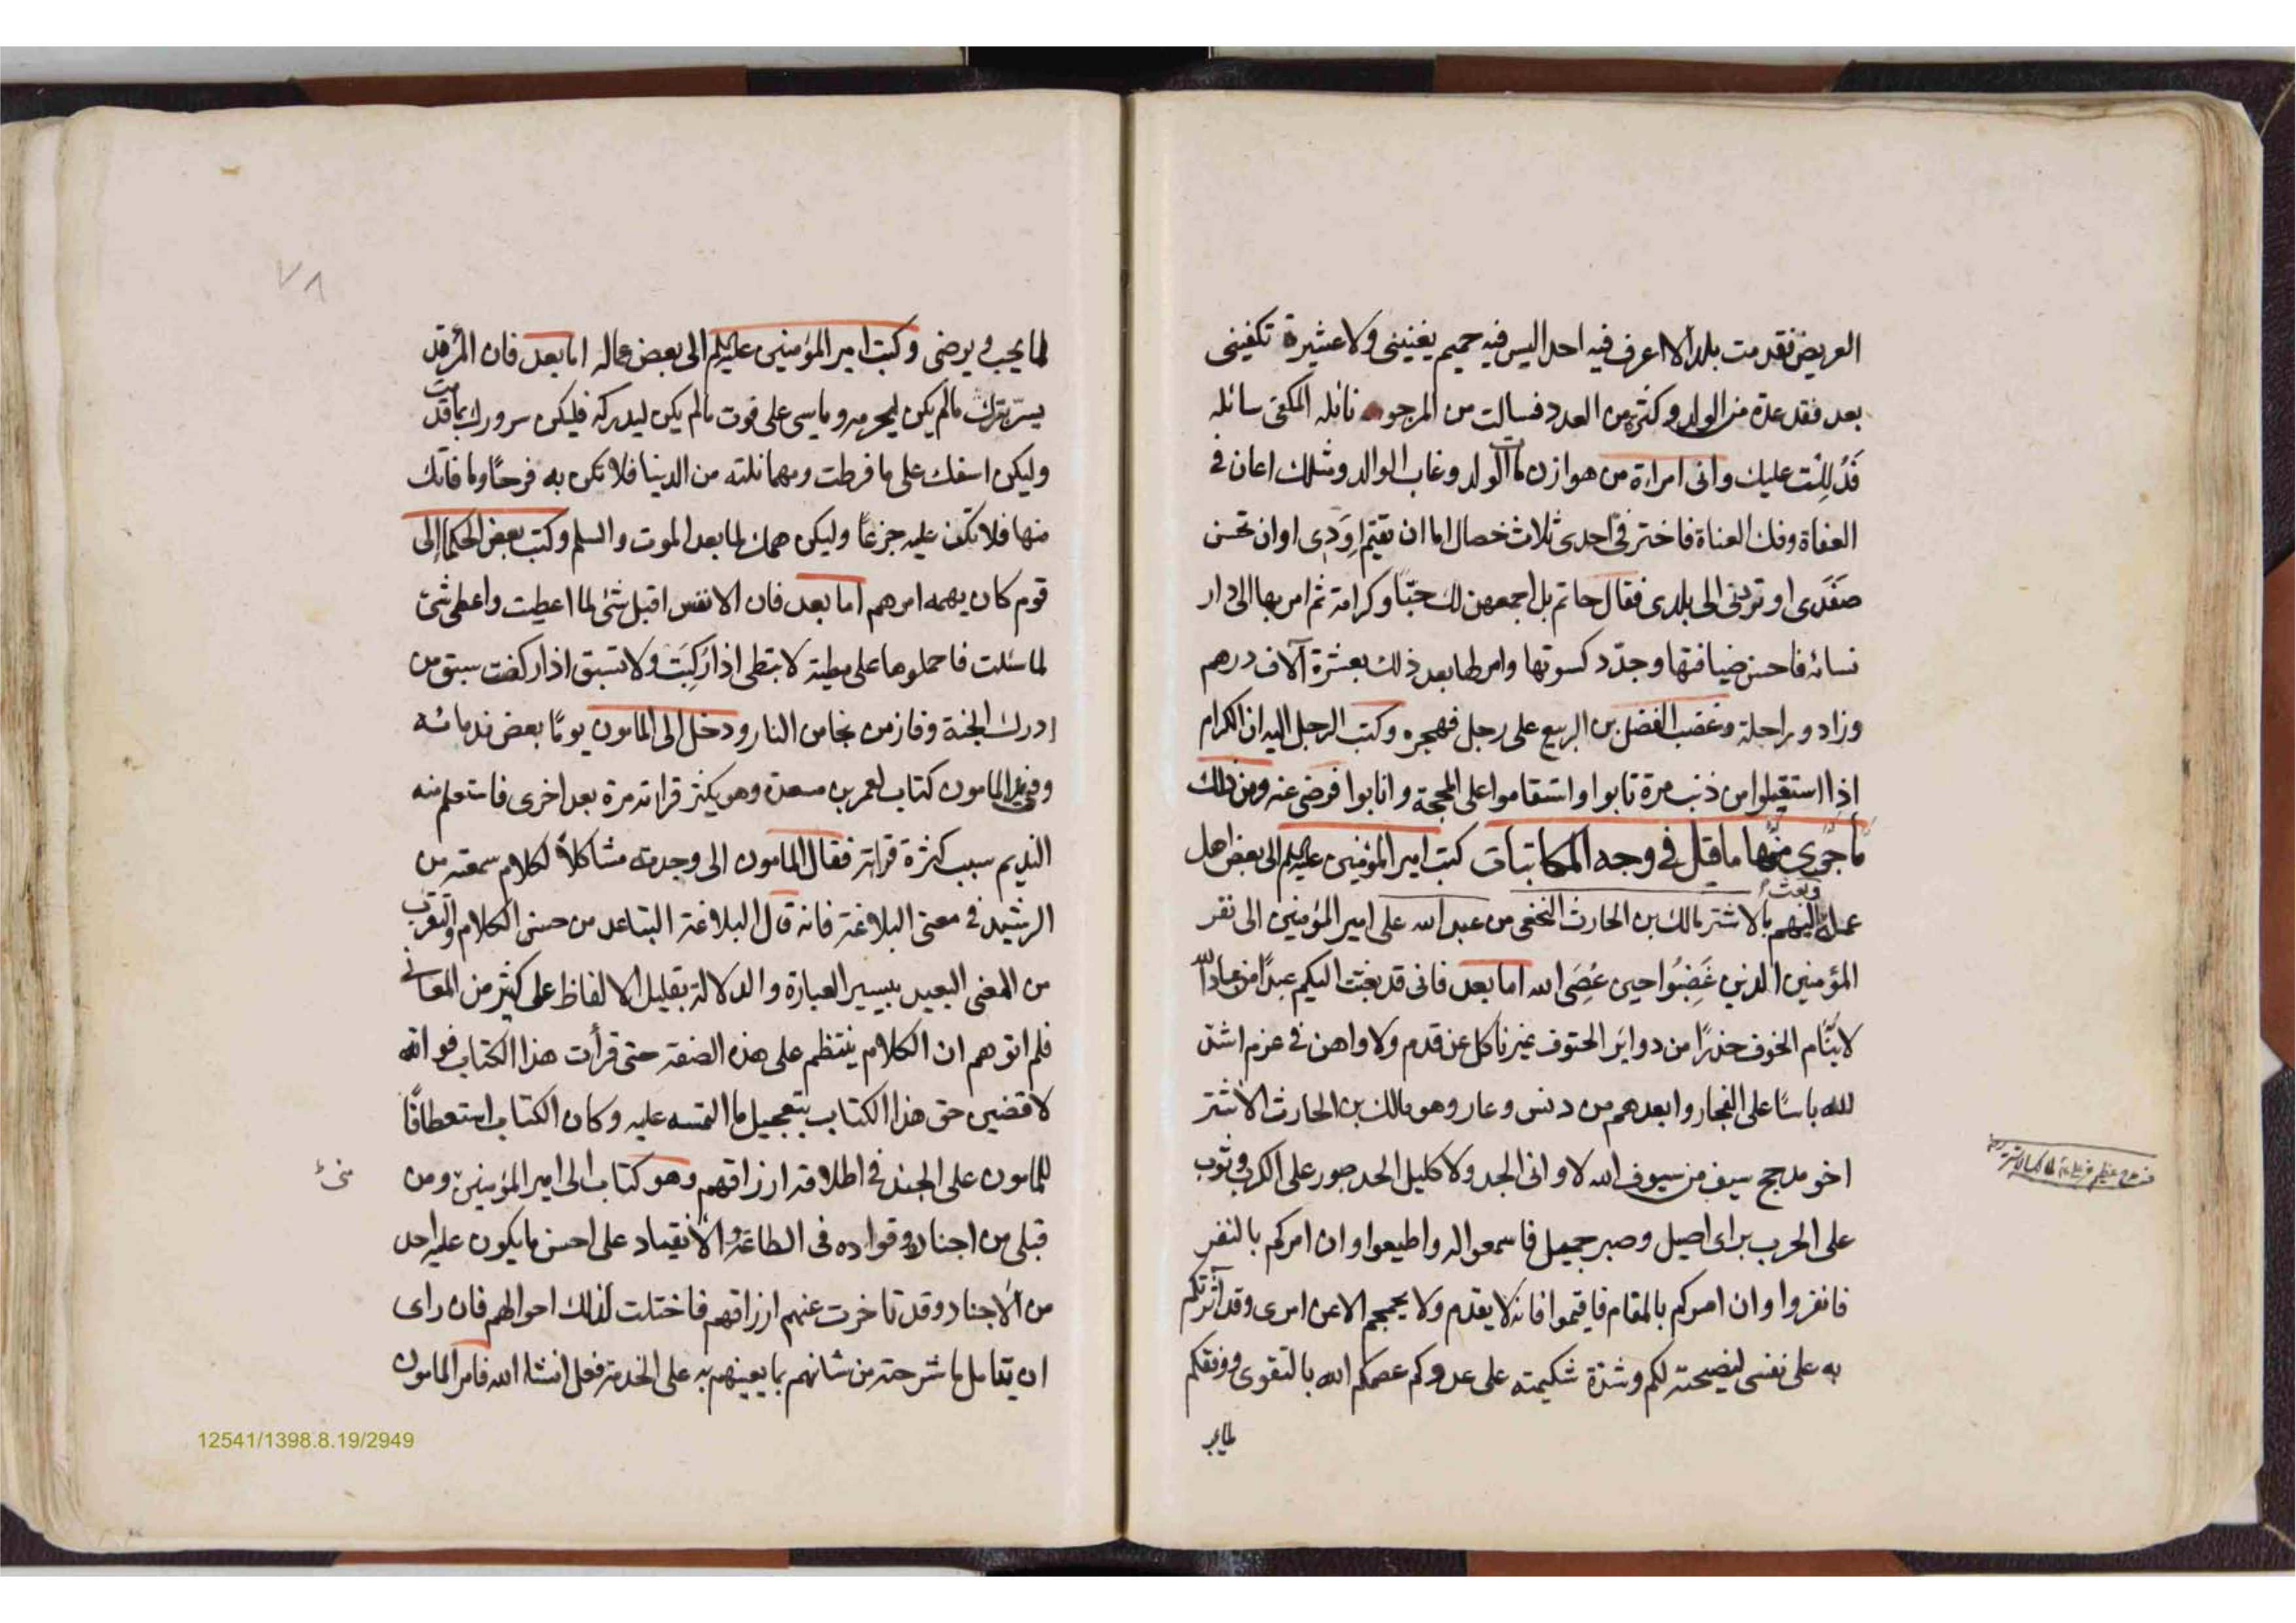 العريض فقدمت بلدا لا اعرف فيه احدا ليس فيه حميم يغنينى ولا عشيرة تكفينى
بعد فقد عدة من الولد وكثرة من العدد فسالت من المرجو نائله المكفى سائله
فَدُلِلْت عليك وانى امراءة من هوازن مات الولد وغاب الوالد ومثلك اعان فى
العفاة وفك العناة فاختر فىّ احدى ثلاث خصال اما ان تقيم اوَدِى او ان تحسن
صَفَدى او تردنى الى بلدى فقال حاتم بل اجمعهن لك حبّا وكرامة ثم امر بها الى دار
نسائه فاحسن ضيافتها وجدّد كسوتها وامر لها بعد ذلك بعشرة آلاف درهم
وزاد وراحلة وغضب الفضل بن الربيع على رجل فهجره وكتب الرجل اليه ان الكرام
اذا استقيلوا من ذنب مرة تابوا واستقاموا على المحجة وانابوا فرضى عنه ومن ذلك
ما جرى منها ما قيل فى وجه المكاتبات كتب امير المؤمنين عليه السلم الى بعض اهل
وبعث
عمله اليهم بالاشتر مالك بن الحارث النخعى من عبد الله على امير المؤمنين الى نفر
المؤمنين الذين غَضِبُوا حين عُصِىَ الله اما بعد فانى قد بعثت اليكم عبدًا من عباد الله
لا ينَام الخوف حذرًا من دوائر الحتوف غير ناكل عن قدم ولا واهن فى عزم اشد
لله باسًا على الفجار وابعدهم من دنس وعار وهو مالك بن الحارث الاشتر
اخو مدحج سيف من سيوف الله لا وانى الجد ولا كليل الحد صبور على الكرب وثوب
على الحرب براى اصيل وصبر جميل فاسمعوا له واطيعوا وان امركم بالنفر
فانفروا وان امركم بالمقام فاقيموا فانه لا يقدم ولا يحجم الا عن امرى وقد آثرتكم
به على نفسى لنصيحته لكم وشدة شكيمته على عدوكم عصمكم الله بالتقوى ووفقكم
لما يحب
٧٨
لما يحب ويرضى وكتب امير المؤمنين عليه السلم الى بعض عماله اما بعد فان المرء قد
يسرّ بدرك ما لم يكن ليحرمه وياسى على فوت ما لم يكن ليدركه فليكن سرورك بما قدمت
وليكن اسفك على ما فرطت ومهما نلته من الدنيا فلا تكن به فرحًا وما فاتك
منها فلا تكن عليه جزعًا وليكن همك لما بعد الموت والسلم وكتب بعض الحكما إلى
قوم كان يهمه امرهم اما بعد فان الانفس اقبل شئ لما اعطيت واعطى شئ
لما سئلت فاحملوها على مطية لا تبطى اذا رُكِبَت ولا تسبق اذا ركضت سبق من
ادرك الجنة وفاز من نجا من النار ودخل الى المامون يومًا بعض ندمائه
وفى يد المامون كتاب لعمر بن مسعدة وهو يكثر قرائته مرة بعد اخرى فاستعلم منه
النديم سبب كثرة قرائته فقال المامون انى وجدته مشاكلاً لكلام سمعته من
الرشيد فى معنى البلاغة فانه قال البلاغة التباعد من حسن الكلام والتقرب
من المعنى البعيد بيسير العبارة والدلالة بقليل الالفاظ على كثير من المعانى
فلم اتوهم ان الكلام ينتظم على هذه الصفة حتى قرأت هذا الكتاب فو الله
لاقضين حق هذا الكتاب بتعجيل ما التمسه عليه وكان الكتاب استعطافًا
للمامون على الجند فى اطلاقه ارزاقهم وهو كتاب الى امير المؤمنين ومن
قبلى من اجناده وقواده فى الطاعة والانقياد على احسن ما يكون عليه احد
من الاجناد وقد تاخرت عنهم ارزاقهم فاختلت لذلك احوالهم فان راى
ان يتامل ما شرحته من شانهم بما يعينهم به على الخدمة فعل انشا الله فامر المامون
12541/1398.8.19/2949